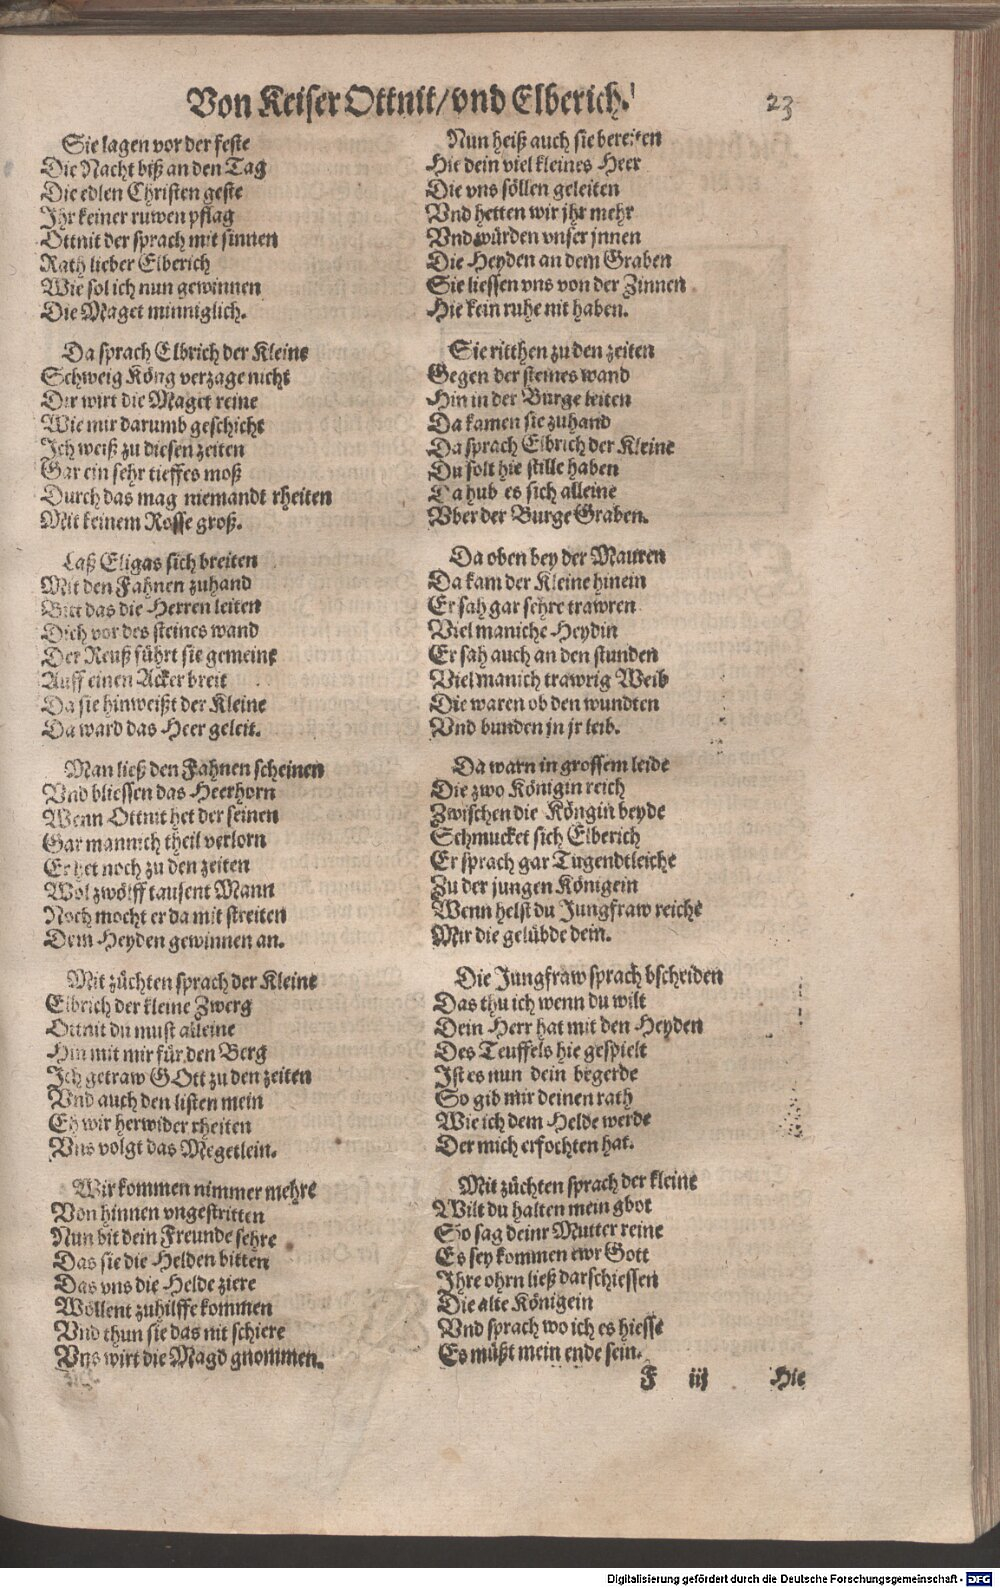 Von Keiser Ottnit/ vnd Elberich.
23
Sie lagen vor der feste
Die Nacht biß an den Tag
Die edlen Christen geste
Ihr keiner ruwen pflag
Ottnit der sprach mit sinnen
Rath lieber Elberich
Wie sol ich nun gewinnen
Die Maget minniglich.
Da sprach Elbrich der Kleine
Schweig Köng verzage nicht
Dir wirt die Maget reine
Wie mir darumb geschicht
Ich weiß zu diesen zeiten
Gar ein sehr tieffes moß
Durch das mag niemandt rheiten
Mit keinem Rosse groß.
Laß Eligas sich breiten
Mit den Fahnen zuhand
Bitt das die Herren leiten
Dich vor des steines wand
Der Reuß führt sie gemeine
Auff einen Acker breit
Da sie hinweißt der Kleine
Da ward das Heer geleit.
Man ließ den Fahnen scheinen
Vnd bliessen das Heerhorn
Wenn Ottnit het der seinen
Gar mannich theil verlorn
Er het noch zu den zeiten
Wol zwölff tausent Mann
Noch mocht er da mit streiten
Dem Heyden gewinnen an.
Mit züchten sprach der Kleine
Elbrich der kleine Zwerg
Ottnit du must alleine
Hin mit mir für den Berg
Ich getraw GOtt zu den zeiten
Vnd auch den listen mein
Eh wir herwider rheiten
Vns volgt das Megetlein.
Wir kommen nimmer mehre
Von hinnen vngestritten
Nun bit dein Freunde sehre
Das sie die Helden bitten
Das vns die Helde ziere
Wöllent zuhilffe kommen
Vnd thun sie das nit schiere
Vns wirt die Magd gnommen.
Nun heiß auch sie bereiten
Hie dein viel kleines Heer
Die vns söllen geleiten
Vnd hetten wir jhr mehr
Vnd würden vnser jnnen
Die Heyden an dem Graben
Sie liessen vns von der Zinnen
Hie kein ruhe nit haben.
Sie ritthen zu den zeiten
Gegen der steines wand
Hin in der Burge leiten
Da kamen sie zuhand
Da sprach Elbrich der Kleine
Du solt hie stille haben
Da hub es sich alleine
Vber der Burge Graben.
Da oben bey der Mauren
Da kam der Kleine hinein
Er sah gar sehre trawren
Viel maniche Heydin
Er sah auch an den stunden
Viel manich trawrig Weib
Die waren ob den wundten
Vnd bunden jn jr leib.
Da warn in grossem leide
Die zwo Königin reich
Zwischen die Köngin beyde
Schmucket sich Elberich
Er sprach gar Tugendtleiche
Zu der jungen Königein
Wenn helst du Jungfraw reiche
Mir die gelübde dein.
Die Jungfraw sprach bscheiden
Das thu ich wenn du wilt
Dein Herr hat mit den Heyden
Des Teuffels hie gespielt
Ist es nun dein begerde
So gib mir deinen rath
Wie ich dem Helde werde
Der mich erfochten hat.
Mit züchten sprach der kleine
Wilt du halten mein gbot
So sag deinr Mutter reine
Es sey kommen ewr Gott
Ihre ohrn ließ dar schiessen
Die alte Königein
Vnd sprach wo ich es hiesse
Es müßt mein ende sein.
F iij Hie
Digitalisierung gefördert durch die Deutsche Forschungsgemeinschaft - DFG